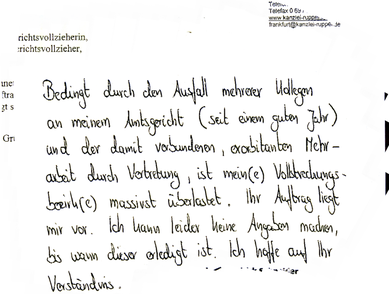 Telefax 0 69
www.kanzlei-ruppe
frankfurt@kanzlei-ruppe .de
richtsvollzieherin,
richtsvollzieher,
Bedingt durch den Ausfall mehrerer Kollegen
an meinem Amtsgericht (seit einem guten Jahr)
und der damit verbundenen, exorbitanten Mehr-
arbeit durch Vertretung, ist mein(e) Vollstreckungs-
bezirk(e) massivst überlastet. Ihr Auftrag liegt
mir vor. Ich kann leider keine Angaben machen,
bis wann dieser erledigt ist. Ich hoffe auf Ihr
Verständnis.